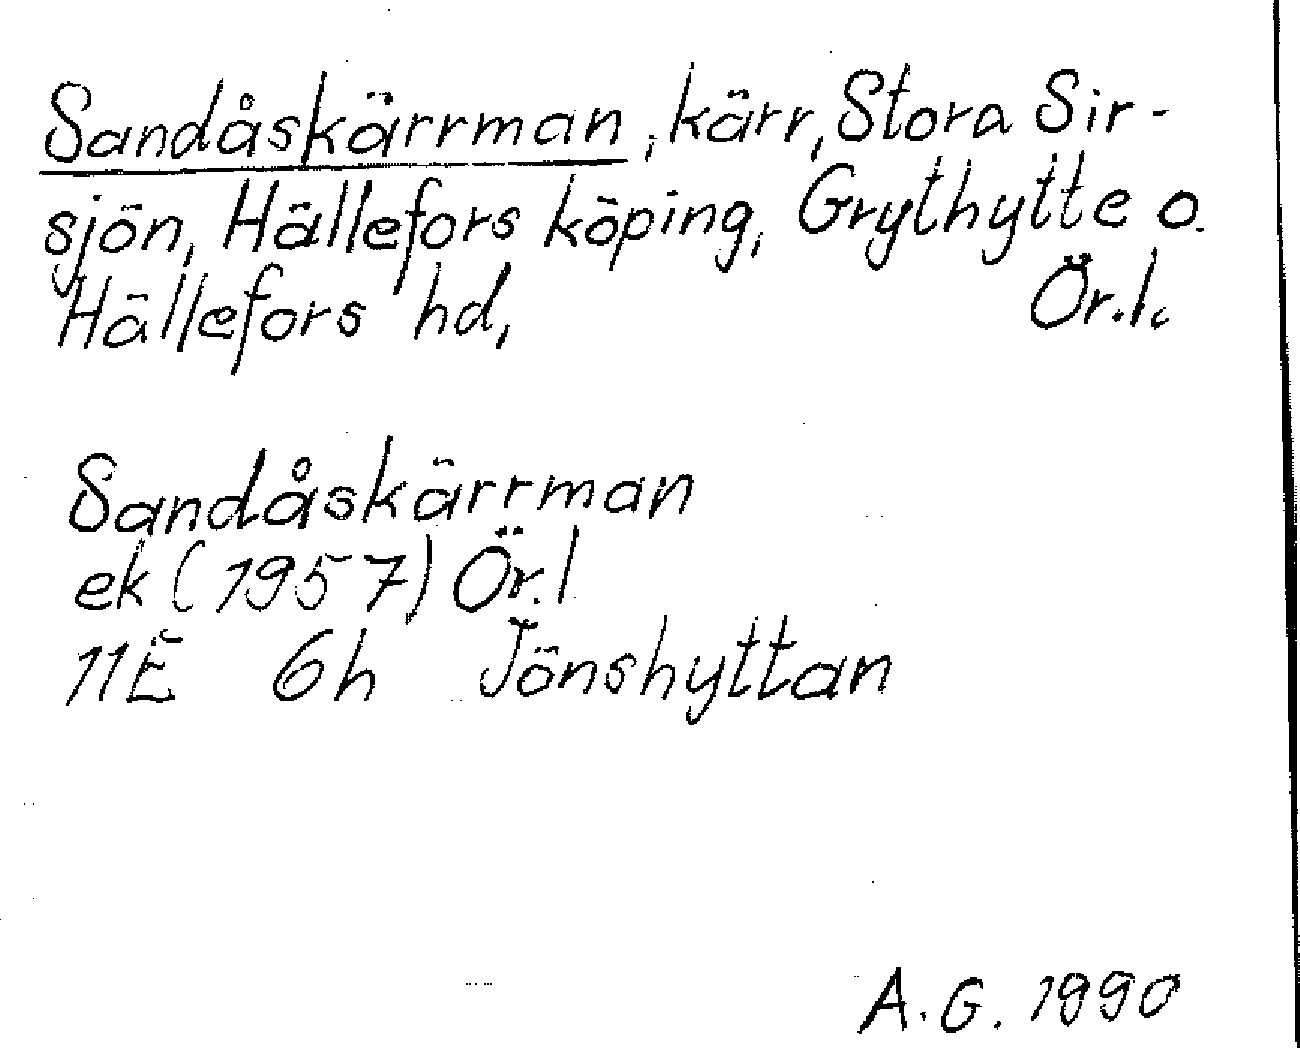 Sandåskärrman, kärr, Stora Sir-
sjön, Hällefors köping, Grythytte o.
Hällefors hd, Ör.l.
Sandåskärrman
ek (1957) Ör.l
11E 6h Jönshyttan
A.G. 1990